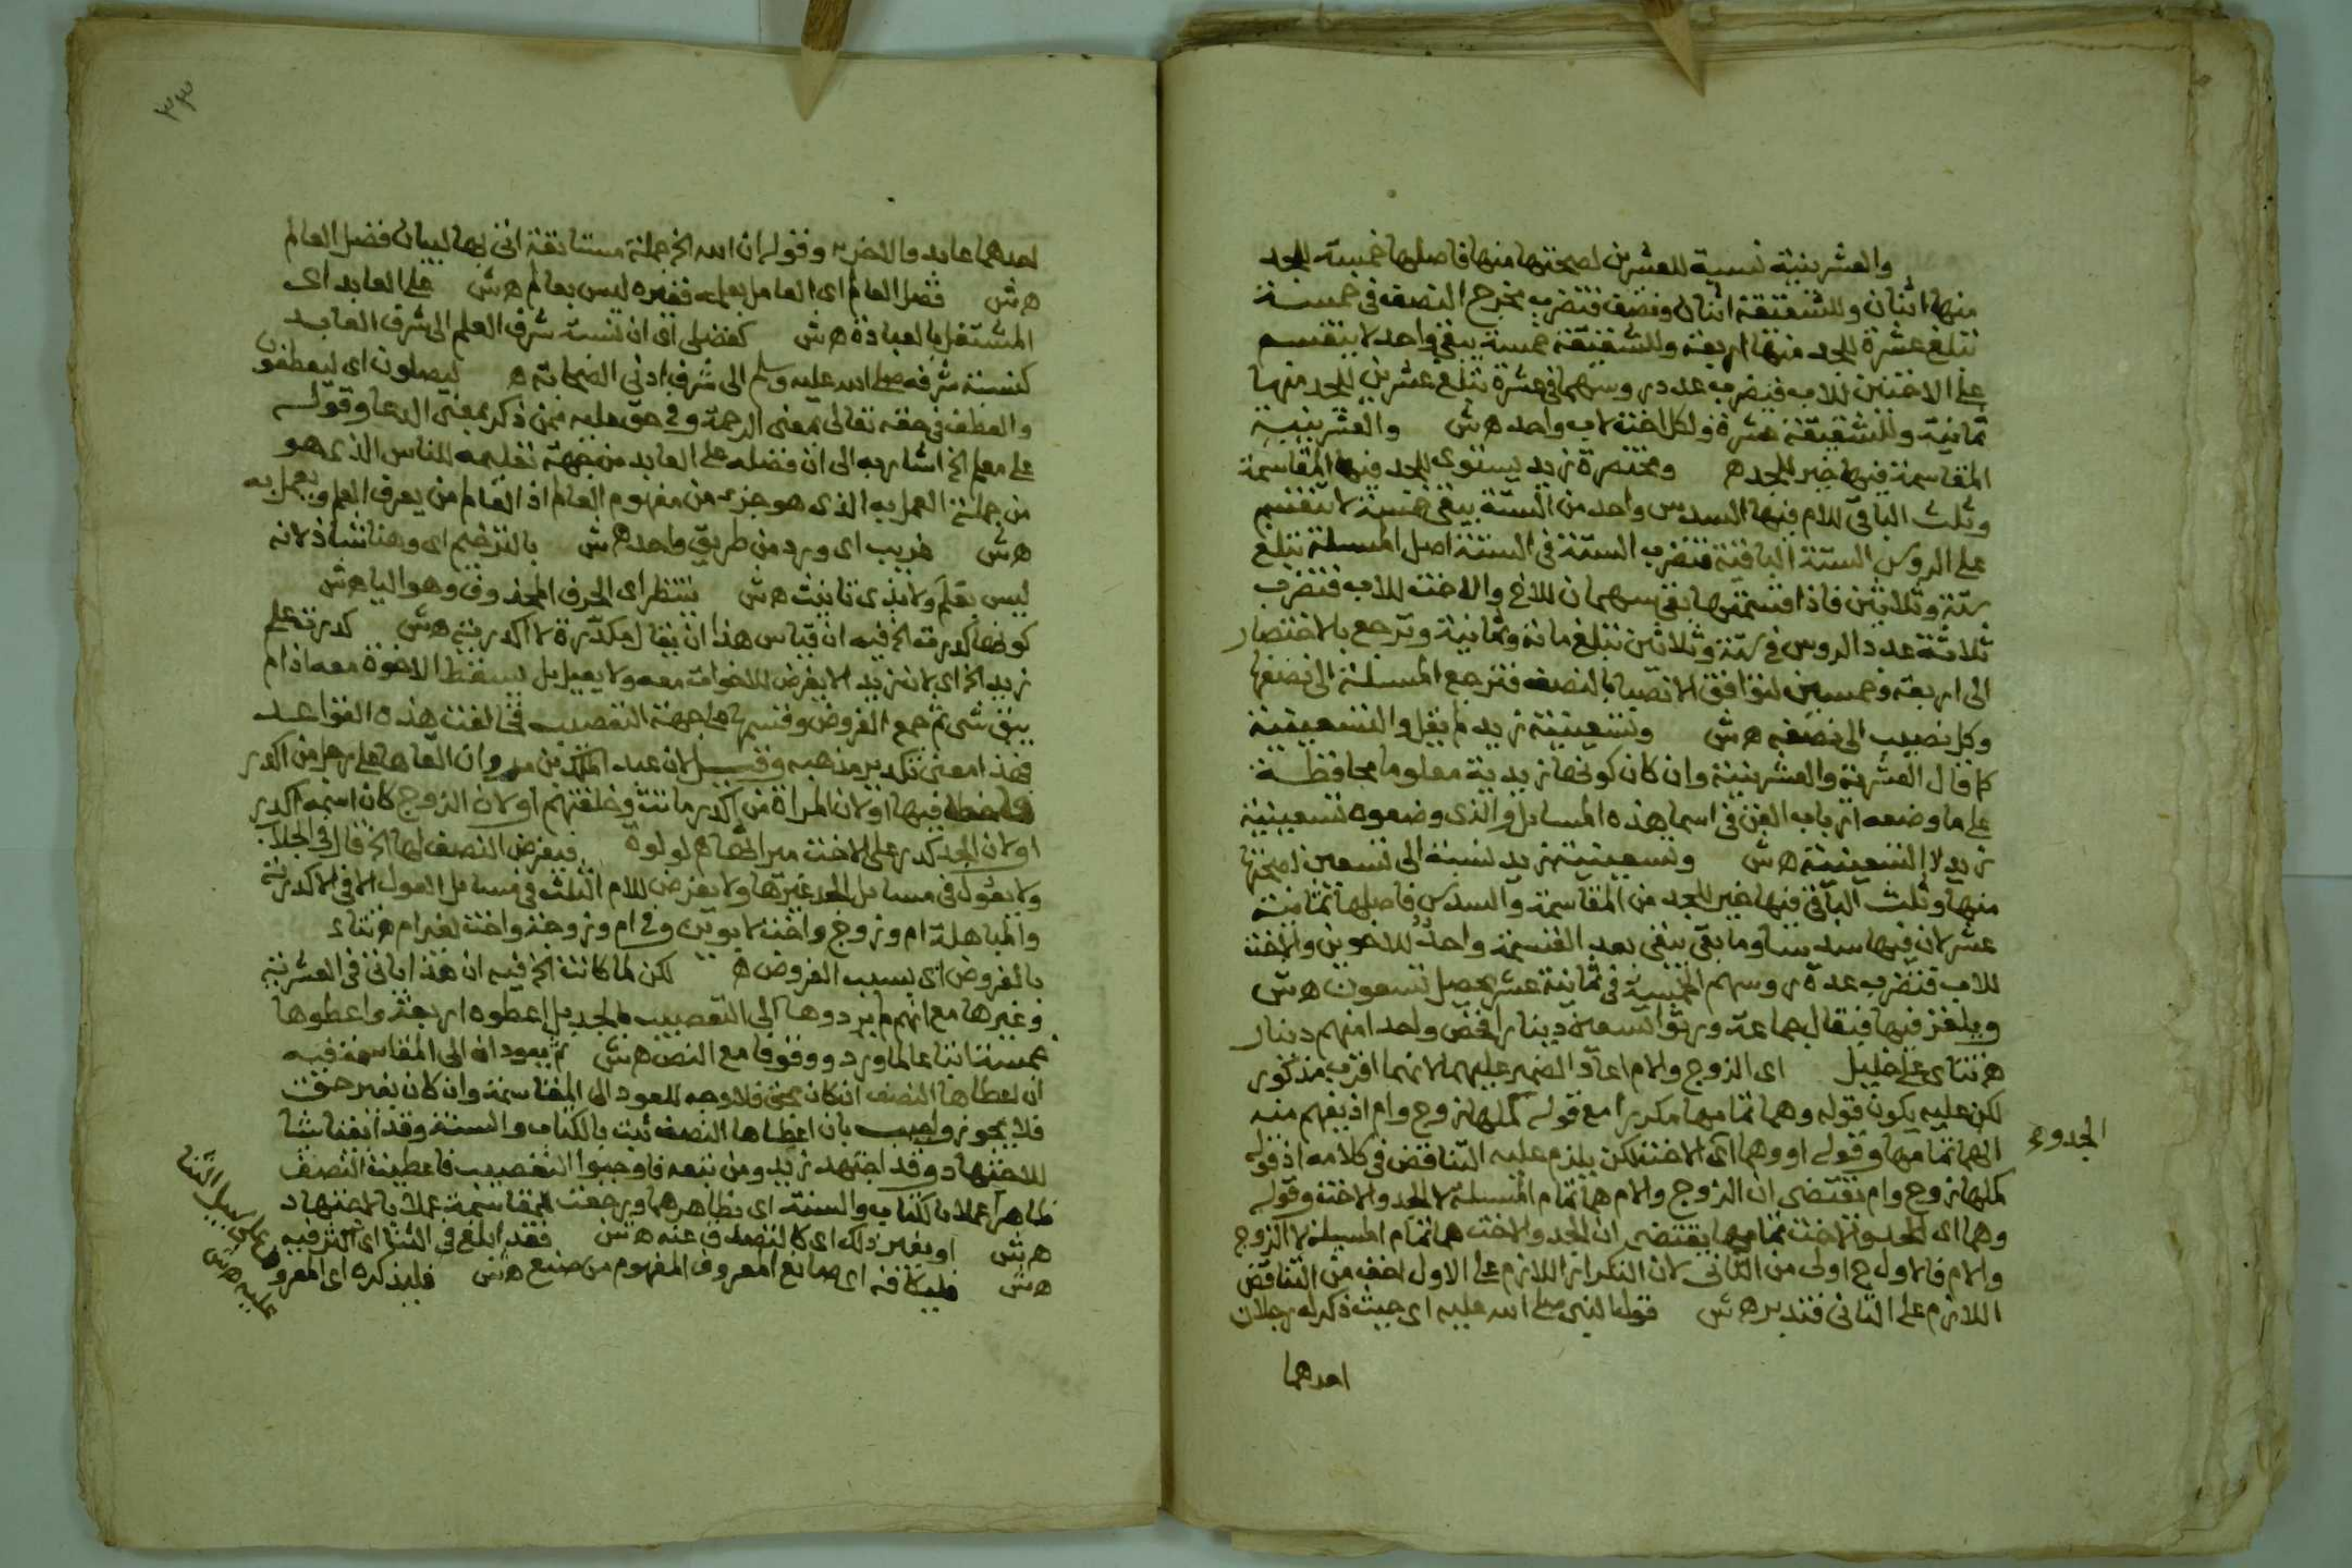 والعشرينية نسبة للعشرين لصحتها منها فاصلها خمسة للجد
منها اثنان وللشقيقة اثنان ونصف فتضرب مخرج النصف في خمسة
تبلغ عشرة للجد منها اربعة وللشقيقة خمسة يبقى واحد لا ينقسم
على الاختين للاب فيضرب عدد روسهما في عشرة تبلغ عشرين للجد منها
ثمانية وللشقيقة عشرة ولكل اخت لاب واحد هش والعشرينية
المقاسمة فيها خير للجد ه ومختصرة زيد يستوي للجد فيها المقاسمة
وثلث الباقي للام فيها السدس واحد من الستة يبقى خمسة لا تنقسم
على الروس الستة الباقية فتضرب الستة في الستة اصل المسلة تبلغ
ستة وثلاثين فاذا قسمتها بقي سهمان للاخ والاخت للاب فتضرب
ثلاثة عدد الروس في ستة وثلاثين تبلغ ماية وثمانية وترجع بالاختصار
الى اربعة وخمسين لتوافق الانصبا بالنصف فترجع المسلة الى نصفها
وكل نصيب الى نصفه هش وتسعينية زيد لم يقل والتسعينية
كما قال العشرية والعشرينية وان كان كونها زيدية معلوما محافظة
على ما وضعه ارباب الفن في اسما هذه المسايل والذي وضعوه تسعينية
زيد لا التسعينية هش وتسعينية زيد نسبة الى تسعين لصحتها
منها وثلث الباقي فيها خير للجد من المقاسمة والسدس فاصلها ثمانية
عشر لان فيها سدسا وما بقي يبقى بعد القسمة واحد للاخوين والاخت
للاب فتضرب عدة روسهم الخمسة في ثمانية عشر يحصل تسعون هش
ويلغز فيها فيقال جماعة ورثوا تسعين دينارا فخص واحدا منهم دينار
ه تتاى على خليل اى الزوج والام اعاد الضمير عليهما لانهما اقرب مذكور
لكن عليه يكون قوله وهما تمامها مكررا مع قوله كملها زوج وام اذ يفهم منه
انهما تمامها وقوله او وهما اى الاخت لكن يلزم عليه التناقض في كلامه اذ قوله
الجد وء
كملها زوج وام تقتضى ان الزوج والام هما تمام المسلة لا الجد والاخت وقوله
وهما اى الجد والاخت تمامها يقتضى ان الجد والاخت هما تمام المسيلة لا الزوج
والام فالاول ح اولى من الثاني لان التكرار اللازم على الاول اخف من التناقض
اللازم على الثاني فتدبر هش قوله النبى صلى الله عليه اى حيث ذكر له رجلان
احدهما
٣٣
احدهما عابد والاخر وقوله ان الله الخ جملة مستانفة اتى بها لبيان فضل العالم
هش فضل العالم اى العامل بعلمه فغيره ليس بعالم هش على العابد اى
المشتغل بالعبادة هش كفضلى اى ان نسبة شرف العلم الى شرف العابد
كنسبة شرفه صلى الله عليه وسلم الى شرف ادنى الصحابة ه ليصلون اى ليعطفون
والعطف في حقه تعالى بمعنى الرحمة وفي حق عليه ممن ذكر بمعنى الدعا وقوله
على معلم الخ اشار به الى ان فضله على العابد من جهة تعليمه للناس الذى هو
من جملة العمل به الذى هو جزء من مفهوم العالم اذ العالم من يعرف العلم ويعمل به
هش غريب اى ورد من طريق واحد هش بالترخيم اى وهنا شاذ لانه
ليس بعلم ولا بذى تانيث هش ينتظر اى الحرف المحذوف وهو اليا هش
كونها كدرت الخ فيه ان قياس هذا ان يقال مكدرة لا اكدرية هش كدرت على
زيد الخ اى لان زيد الا يفرض للاخوات معه ولا يعيل بل يسقط الاخوة معه اذا لم
يبق شى ثم جمع الفروض وقسمها على جهة التعصيب في خالفت هذه القواعد
فهذا معنى تكدير مذهبه وقيل لان عبد الملك بن مروان القاها على رجل من اكدر
فاخطا فيها او لان المراة من اكدر ماتت وخلفتهم او لان الزوج كان اسمه اكدر
او لان الجد كدر على الاخت ميراثها ه لولوة فيفرض النصف لها الخ قال في الجلاب
ولا يعول في مسايل الجد غيرها ولا يفرض للام الثلث في مسايل العول الا في الاكدرية
والمباهلة ام وزوج واخت لابوين وفي ام وزوجة واخت لغير ام ه تتاى
بالفروض اى بسبب الفروض ه لكن لما كانت الخ فيه ان هذا ياتى في العشرية
وغيرها مع انهم لم يردوها الى التعصيب بالجد بل اعطوه اربعة واعطوها
خمسة اتباعا لما ورد ووقوفا مع النص هش ثم يعودان الى المقاسمة فيه
ان اعطاها النصف ان كان بحق فلا وجه للعود الى المقاسمة وان كان بغير حق
فلا يجوز واجيب بان اعطاها النصف ثبت بالكتاب والسنة وقد انفتاشا
للاجتهاد وقد اجتهد زيد ومن تبعه فاوجبوا التعصيب فاعطيت النصف
ظاهرا عملا بالكتاب والسنة اى بظاهرهما ورجعت للمقاسمة عملا بالاجتهاد
هش او بغير ذلك اى كالتصدق عنه هش فقد ابلغ في الثنا اى اكثر فيه
هش فليكافه اى صانع المعروف المفهوم من صنع هش فليذكره اى المعروف
على سبيل الثنا
عليه هش